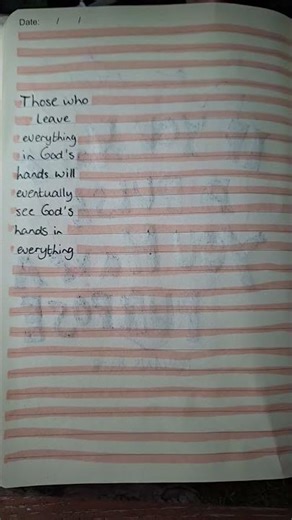 Date: / /
Those who
Leave
everything
in God's
hands will
eventually
see God's
hands in
everything